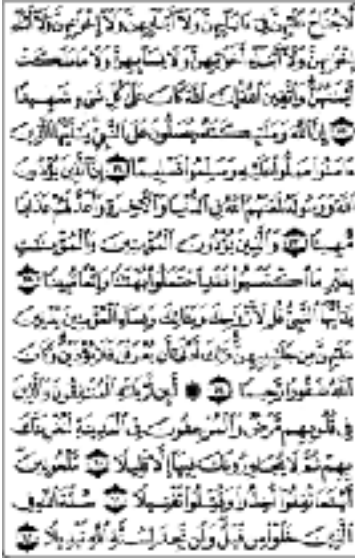 لَّا جُنَاحَ عَلَيْهِنَّ فِي ءَابَآئِهِنَّ وَلَآ أَبْنَآئِهِنَّ وَلَآ إِخْوَٰنِهِنَّ وَلَآ أَبْنَآءِ
إِخْوَٰنِهِنَّ وَلَآ أَبْنَآءِ أَخَوَٰتِهِنَّ وَلَا نِسَآئِهِنَّ وَلَا مَا مَلَكَتْ
أَيْمَٰنُهُنَّ وَٱتَّقِينَ ٱللَّهَ إِنَّ ٱللَّهَ كَانَ عَلَىٰ كُلِّ شَيْءٍ شَهِيدًا
إِنَّ ٱللَّهَ وَمَلَٰٓئِكَتَهُۥ يُصَلُّونَ عَلَى ٱلنَّبِيِّ يَٰٓأَيُّهَا ٱلَّذِينَ
ءَامَنُوا۟ صَلُّوا۟ عَلَيْهِ وَسَلِّمُوا۟ تَسْلِيمًا إِنَّ ٱلَّذِينَ يُؤْذُونَ
ٱللَّهَ وَرَسُولَهُۥ لَعَنَهُمُ ٱللَّهُ فِي ٱلدُّنْيَا وَٱلْءَاخِرَةِ وَأَعَدَّ لَهُمْ عَذَابًا
مُّهِينًا وَٱلَّذِينَ يُؤْذُونَ ٱلْمُؤْمِنِينَ وَٱلْمُؤْمِنَٰتِ
بِغَيْرِ مَا ٱكْتَسَبُوا۟ فَقَدِ ٱحْتَمَلُوا۟ بُهْتَٰنًا وَإِثْمًا مُّبِينًا
يَٰٓأَيُّهَا ٱلنَّبِيُّ قُل لِّأَزْوَٰجِكَ وَبَنَاتِكَ وَنِسَآءِ ٱلْمُؤْمِنِينَ يُدْنِينَ
عَلَيْهِنَّ مِن جَلَٰبِيبِهِنَّ ذَٰلِكَ أَدْنَىٰٓ أَن يُعْرَفْنَ فَلَا يُؤْذَيْنَ وَكَانَ
ٱللَّهُ غَفُورًا رَّحِيمًا ۞ لَّئِن لَّمْ يَنتَهِ ٱلْمُنَٰفِقُونَ وَٱلَّذِينَ
فِي قُلُوبِهِم مَّرَضٌ وَٱلْمُرْجِفُونَ فِي ٱلْمَدِينَةِ لَنُغْرِيَنَّكَ
بِهِمْ ثُمَّ لَا يُجَاوِرُونَكَ فِيهَآ إِلَّا قَلِيلًا مَّلْعُونِينَ
أَيْنَمَا ثُقِفُوٓا۟ أُخِذُوا۟ وَقُتِّلُوا۟ تَقْتِيلًا سُنَّةَ ٱللَّهِ فِي
ٱلَّذِينَ خَلَوْا۟ مِن قَبْلُ وَلَن تَجِدَ لِسُنَّةِ ٱللَّهِ تَبْدِيلًا